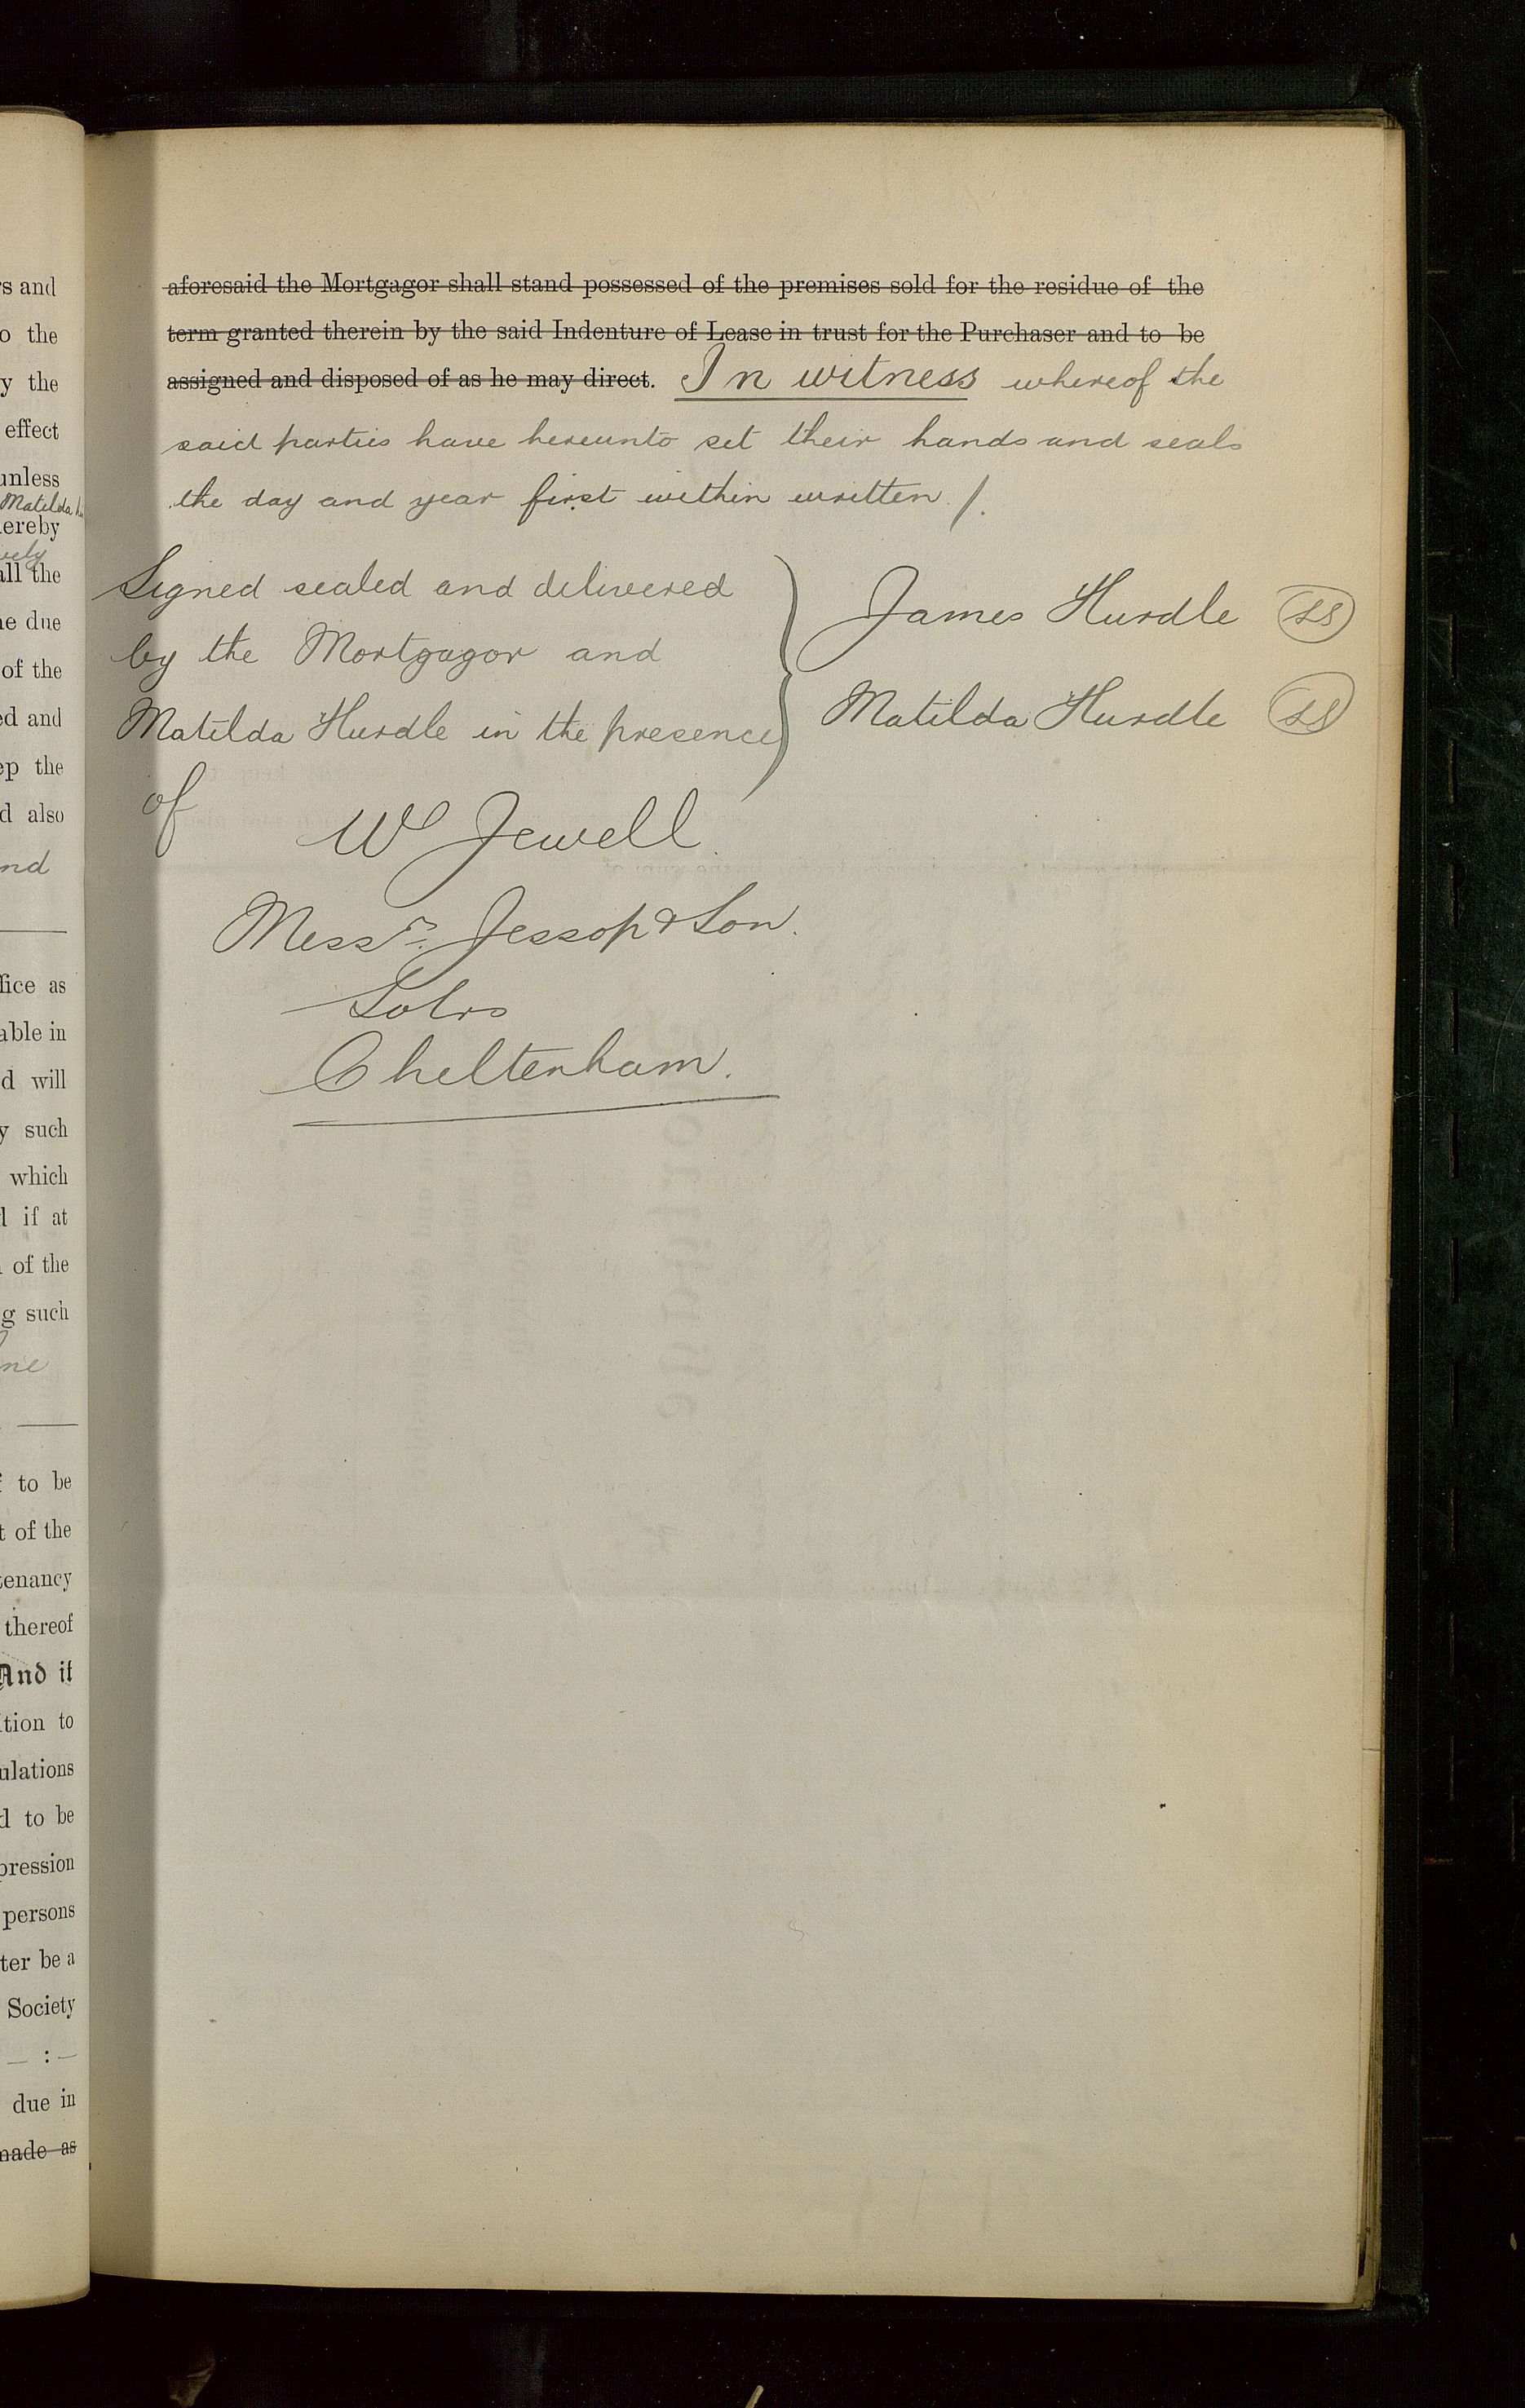 s and
o the
y the
effect
unless
Matilda
ereby
all the
e due
of the
ed and
ep the
d also
nd
fice as
able in
d will
y such
which
l if at
of the
g such
ne
to be
t of the
tenancy
thereof
And it
ition to
ulations
d to be
pression
persons
ter be a
Society
— : —
due in
made as
aforesaid the Mortgagor shall stand possessed of the premises sold for the residue of the
term granted therein by the said Indenture of Lease in trust for the Purchaser and to be
assigned and disposed of as he may direct. In witness whereof the
said parties have hereunto set their hands and seals
the day and year first within written /.
Signed sealed and delivered
by the Mortgagor and
Matilda Hurdle in the presence
of
James Hurdle LS
Matilda Hurdle LS
W Jewell
Messrs. Jessop & Son.
Solrs
Cheltenham.